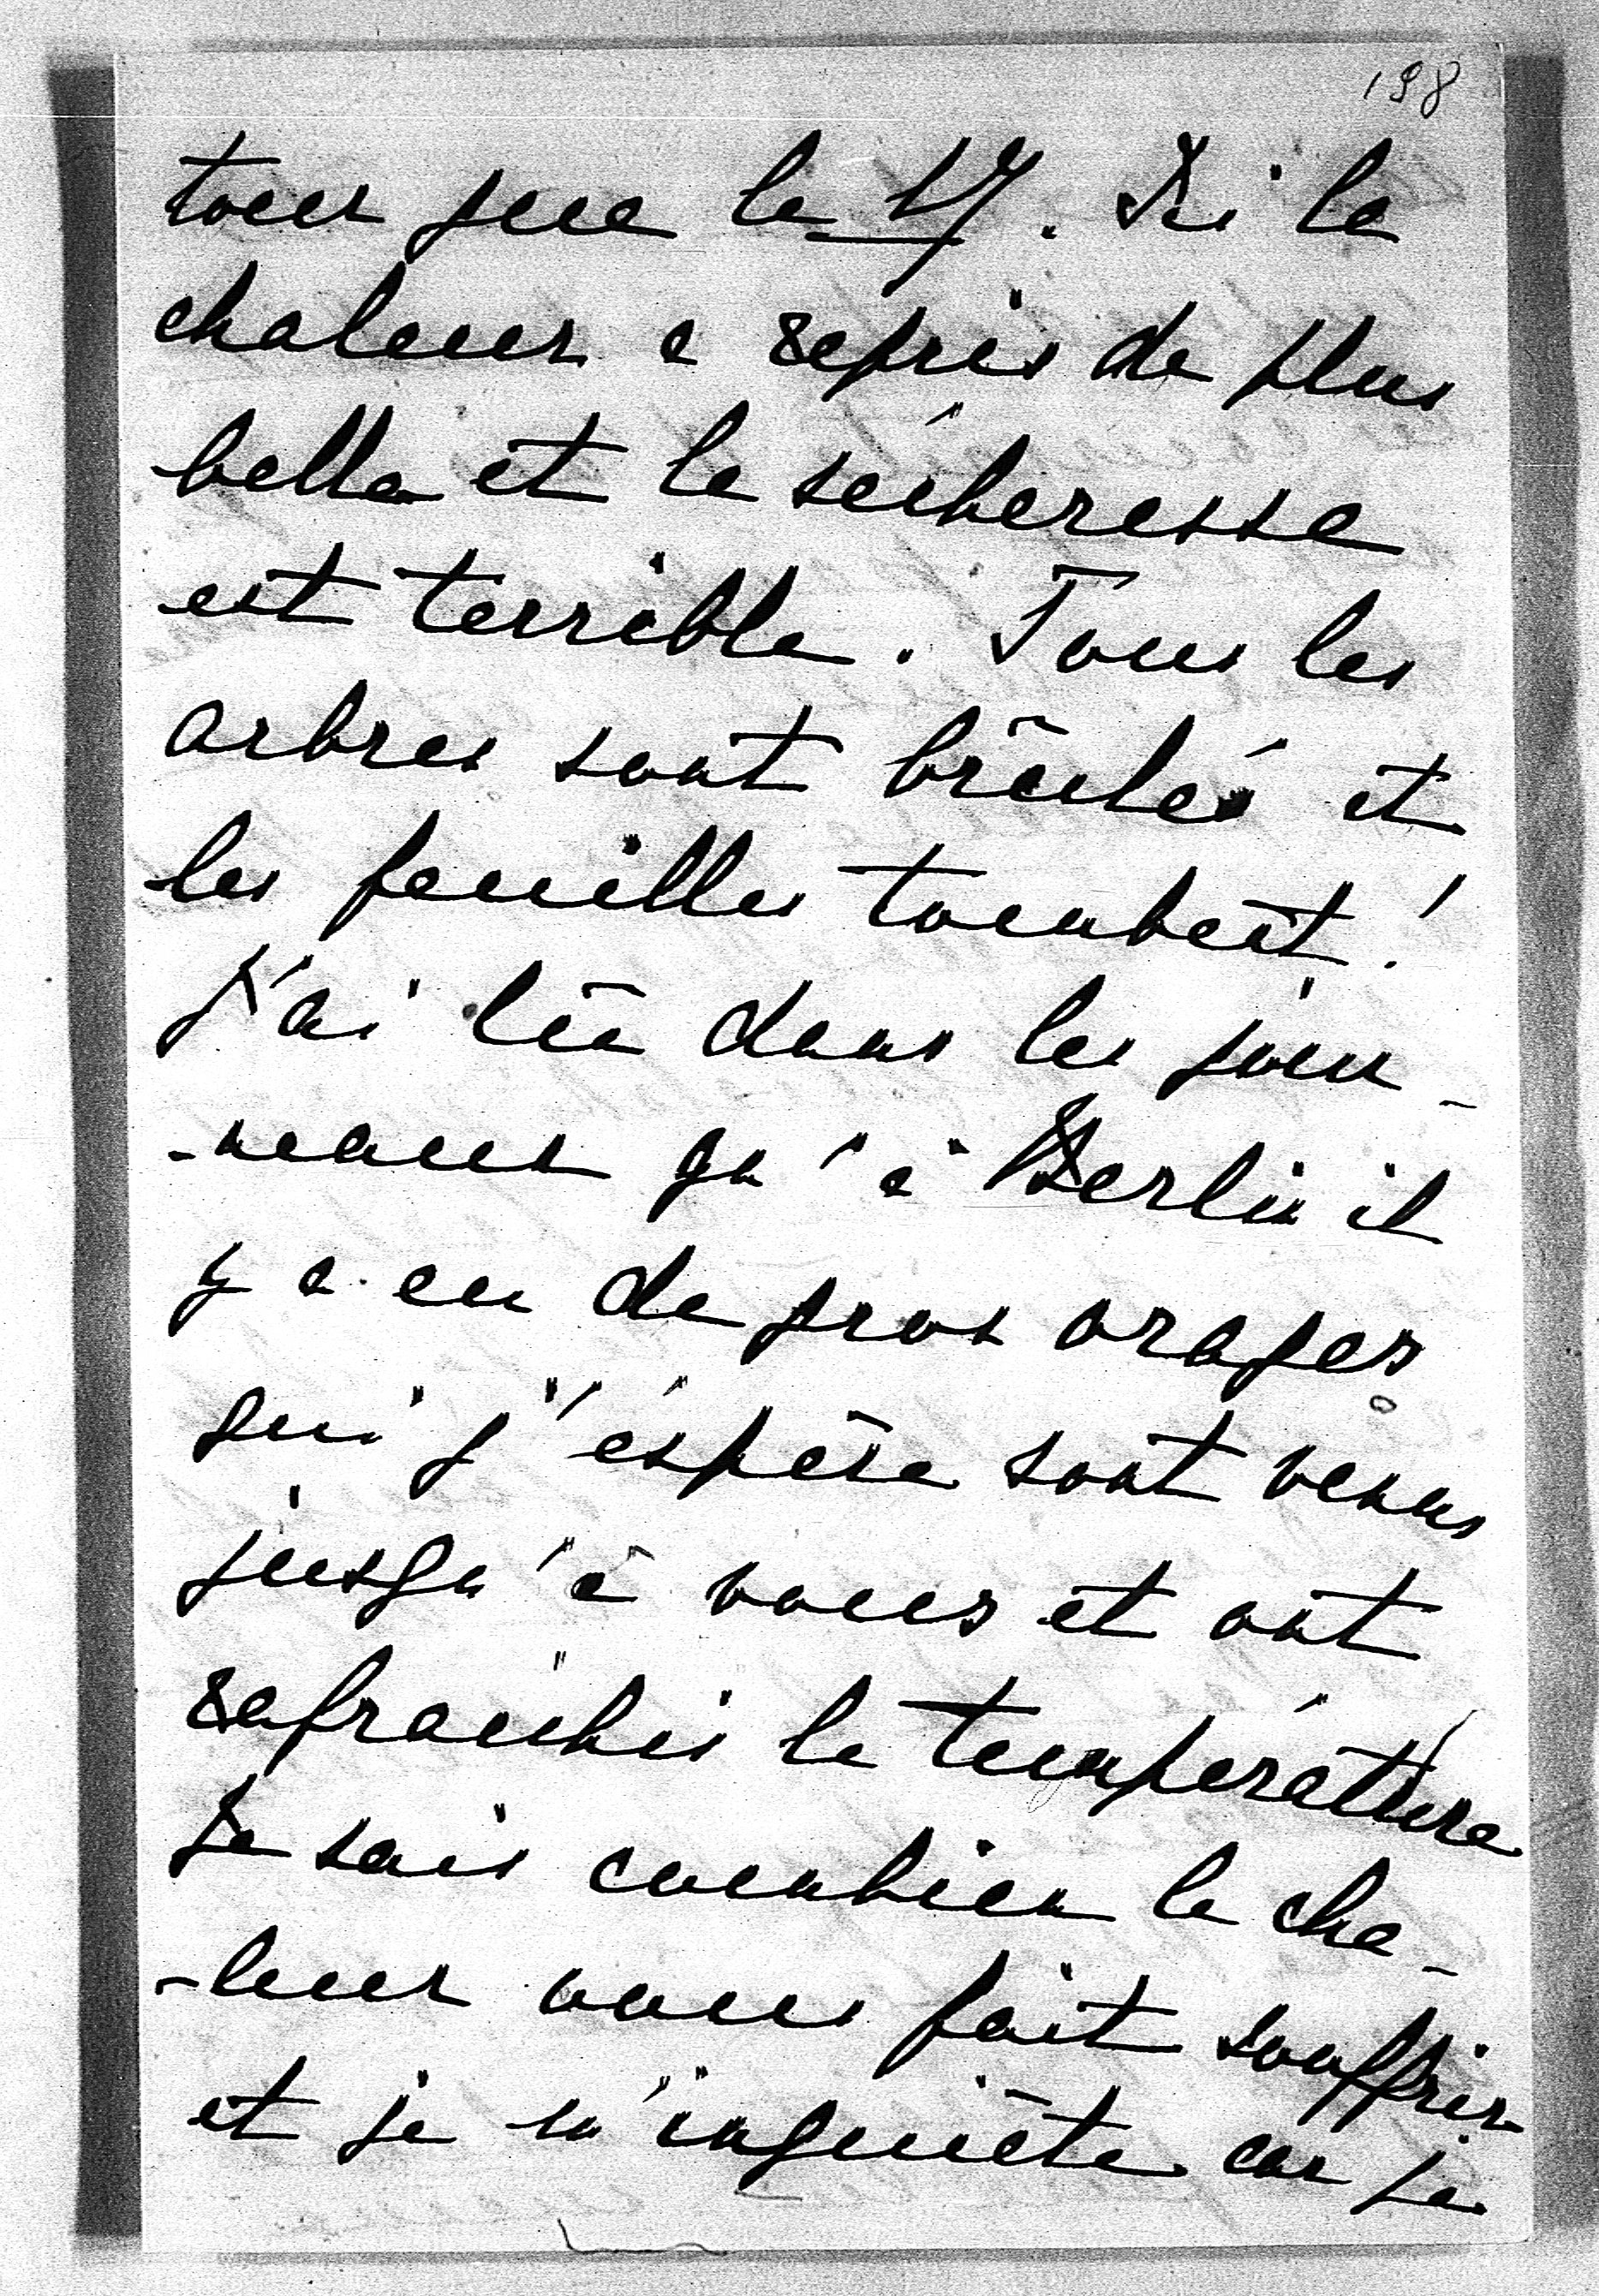 198
tour que le 17. Ici la
chaleur a repris de plus
belle et la sécheresse
est terrible. Tous les
arbres sont brûlés et
les feuilles tombent!
J'ai lû dans les jour-
-neaux qu'à Berlin il
y a eu de gros orages
qui j'éspère sont venus
jusqu'à vous et ont
rafraichis la température
Je sais combien la cha-
-leur vous fait souffrir
et je m'inquiète car je